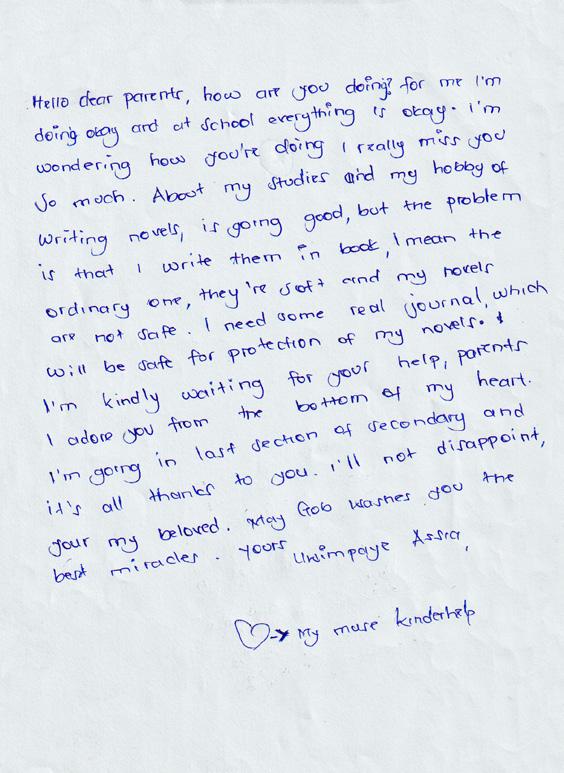 Hello dear parents, how are you doing? for me I'm
doing okay and at school everything is okay. I'm
wondering how you're doing I really miss you
so much. About my studies and my hobby of
writing novels, is going good, but the problem
is that I write them in book, I mean the
ordinary one, they're soft and my novels
are not safe. I need some real journal, which
will be safe for protection of my novels.
I'm kindly waiting for your help, parents
I adore you from the bottom of my heart.
I'm going in last section of secondary and
it's all thanks to you. I'll not disappoint,
your my beloved. May Gob washes you the
best miracles. Yours Uwimpaye Assia,
My muse kinderhelp